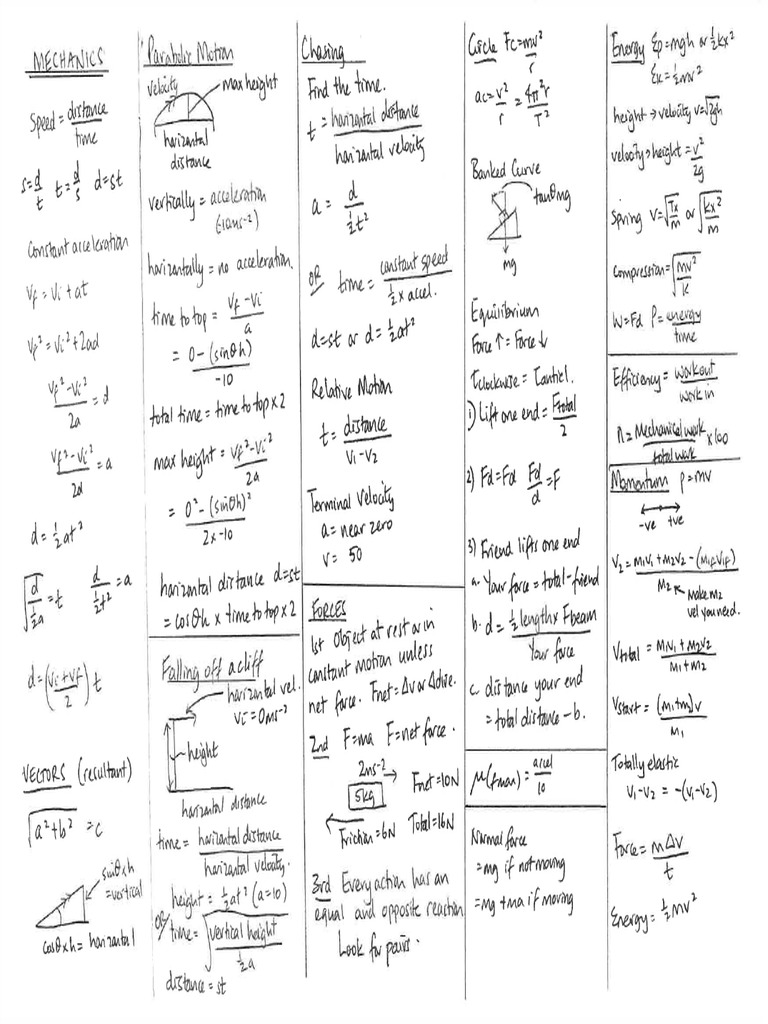 MECHANICS
Speed = distance / time
s = d/t  t = d/s  d = st
Constant acceleration
Vf = Vi + at
Vf² = Vi² + 2ad
(Vf² - Vi²) / 2a = d
(Vf² - Vi²) / 2d = a
d = ½at²
√(d / ½a) = t  d / ½t² = a
d = ((Vi + Vf) / 2) t
VECTORS (resultant)
√(a² + b²) = c
sinθ x h
= vertical
cosθ x h = horizontal
Parabolic Motion
velocity
max height
horizontal
distance
vertically = acceleration
(-10ms⁻²)
horizontally = no acceleration.
time to top = (Vf - Vi) / a
= (0 - (sinθh)) / -10
total time = time to top x 2
max height = (Vf² - Vi²) / 2a
= (0² - (sinθh)²) / (2x-10)
horizontal distance d = st
= cosθh x time to top x 2
Falling off a cliff
horizontal vel.
Vi = 0ms⁻²
height
horizontal distance
time = horizontal distance / horizontal velocity.
height = ½at² (a=10)
OR time = √(vertical height / ½a)
distance = st
Chasing
Find the time.
t = horizontal distance / horizontal velocity
a = d / ½t²
OR time = constant speed / (½ x accel.)
d = st or d = ½at²
Relative Motion
t = distance / (V₁ - V₂)
Terminal Velocity
a = near zero
v = 50
FORCES
1st Object at rest or in
constant motion unless
net force. Fnet = Δv or Δdire.
2nd F = ma F = net force.
2ms⁻²
5kg
Fnet = 10N
Friction = 6N Total = 16N
3rd Every action has an
equal and opposite reaction
Look for pairs.
Circle Fc = mv² / r
ac = v² / r = 4π²r / T²
Banked Curve
tanθmg
mg
Equilibrium
Force ↑ = Force ↓
τclockwise = τanticl.
1) Lift one end = Ftotal / 2
2) Fd = Fd  Fd / d = F
3) Friend lifts one end
a. Your force = total - friend
b. d = (½ length x Fbeam) / Your force
c. distance your end
= total distance - b.
μ(fmax) = accel / 10
Normal force
= mg if not moving
= mg + ma if moving
Energy Ep = mgh or ½kx²
Ek = ½mv²
height → velocity v = √2gh
velocity → height = v² / 2g
Spring V = √(Tx / m) or √(kx² / m)
Compression = √(mv² / k)
W = Fd  P = energy / time
Efficiency = work out / work in
n = Mechanical work / total work x 100
Momentum p = mv
-ve +ve
V₂ = (M₁V₁ + M₂V₂ - (M₁fV₁f)) / M₂
Make M₂
vel you need.
Vtotal = (M₁V₁ + M₂V₂) / (M₁ + M₂)
Vstart = (M₁ + m)v / M₁
Totally elastic
V₁ - V₂ = -(V₁ - V₂)
Force = mΔv / t
Energy = ½mv²